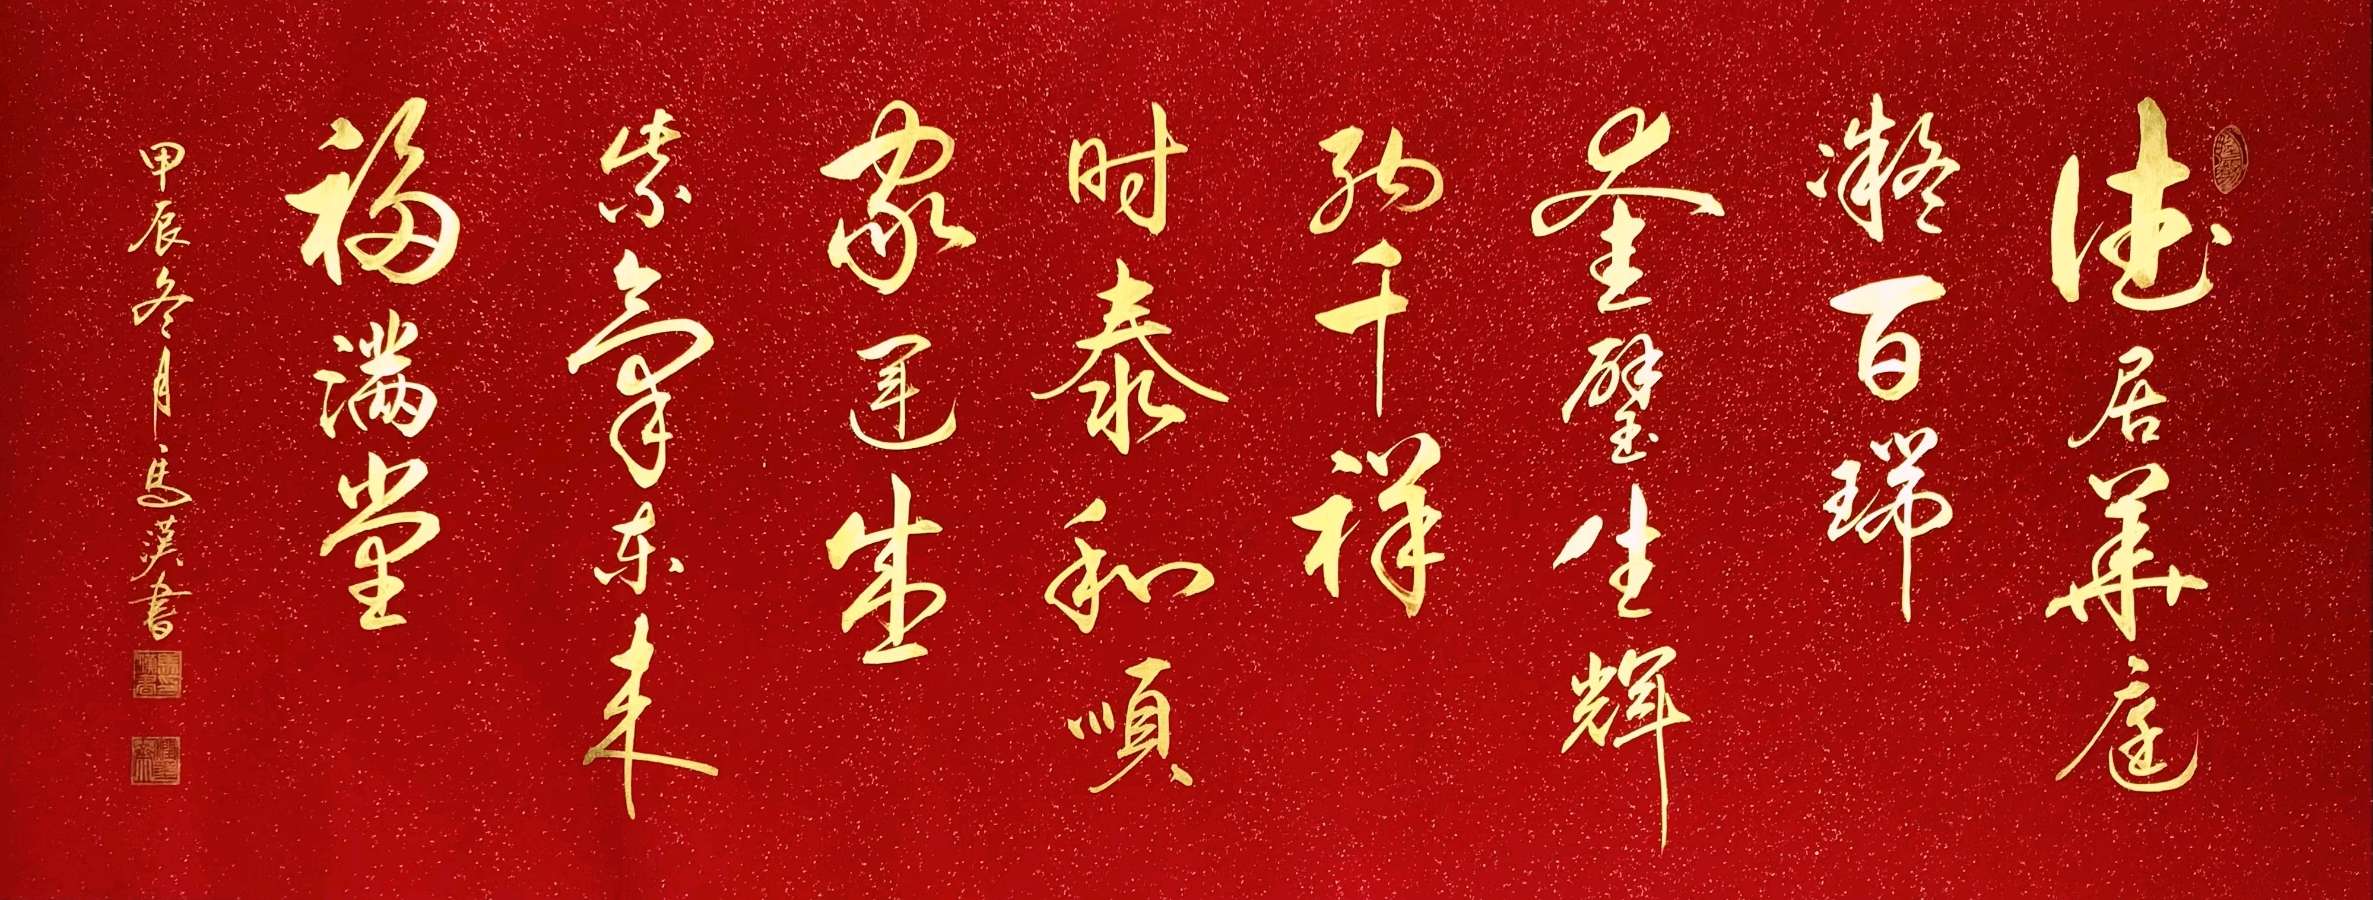 德居華庭
凝百瑞
奎璧生輝
納千祥
时泰和順
家運盛
紫氣东来
福满堂
甲辰冬月馬漢書